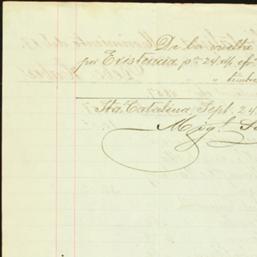 De la vuelta
por Existencia pa. 24 d/f. efvo
" timbre
Sta. Catalina, Sept. 24
Migl.